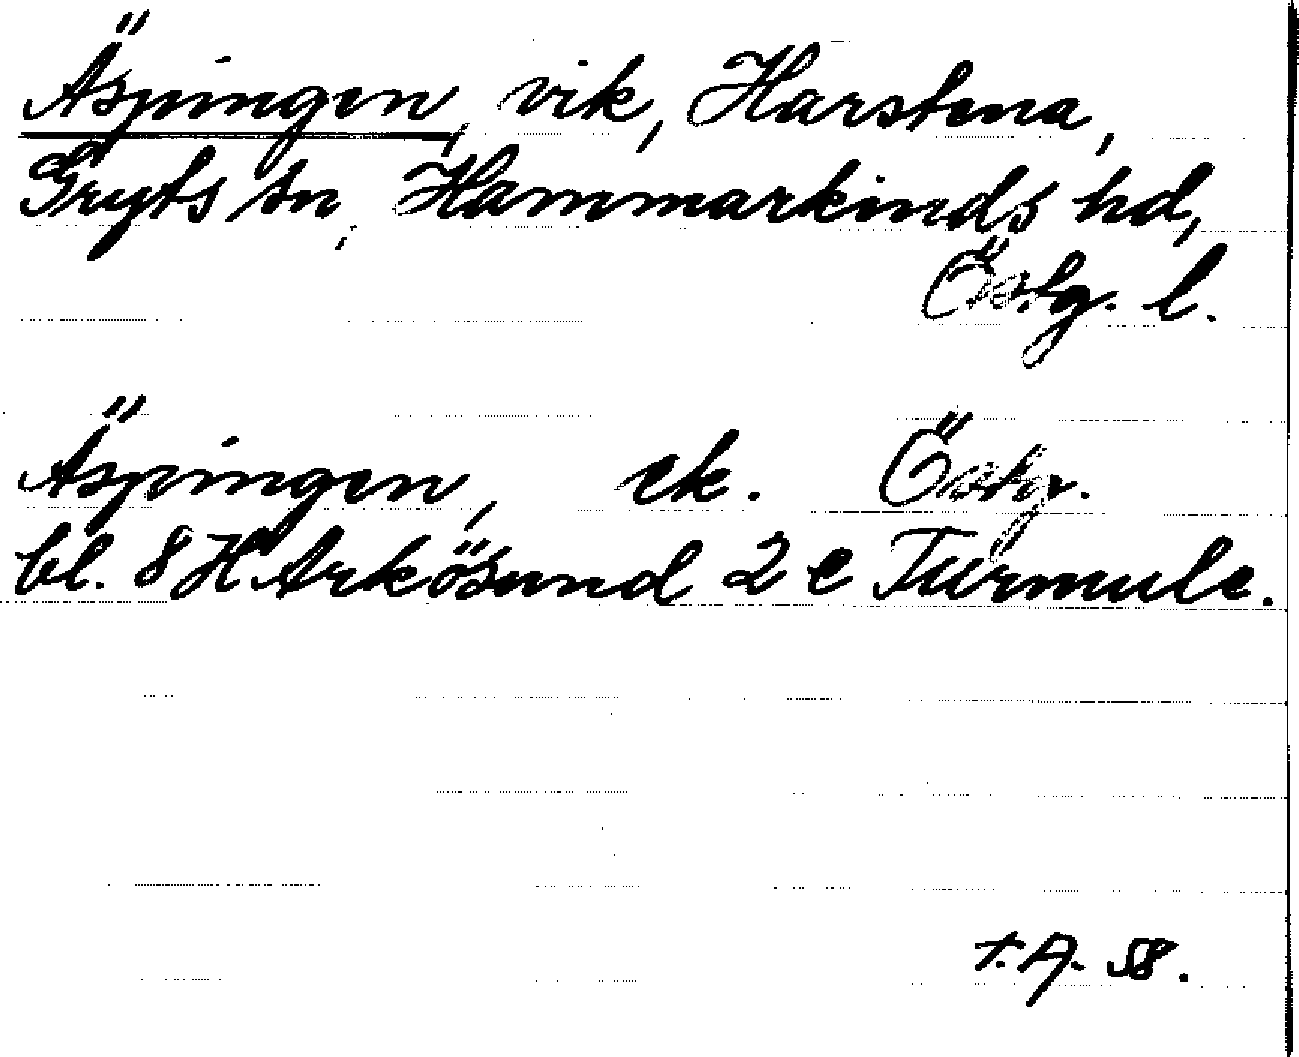 Äspingen, vik, Harstena,
Gryts sn, Hammarkinds hd,
Östg. l.
Äspingen, ek. Östg.
bl. 8 H Arkösund 2 e Turmule.
t.A. 58.